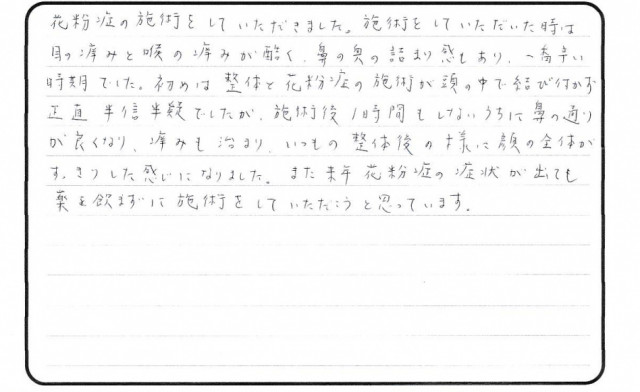 花粉症の施術をしていただきました。施術をしていただいた時は
目の痒みと喉の痒みが酷く、鼻の奥の詰まり感もあり、一番辛い
時期でした。初めは整体と花粉症の施術が頭の中で結び付かず
正直半信半疑でしたが、施術後1時間もしないうちに鼻の通り
が良くなり、痒みも治まり、いつもの整体後の様に顔の全体が
すっきりした感じになりました。また来年花粉症の症状が出ても
薬を飲まずに施術をしていただこうと思っています。